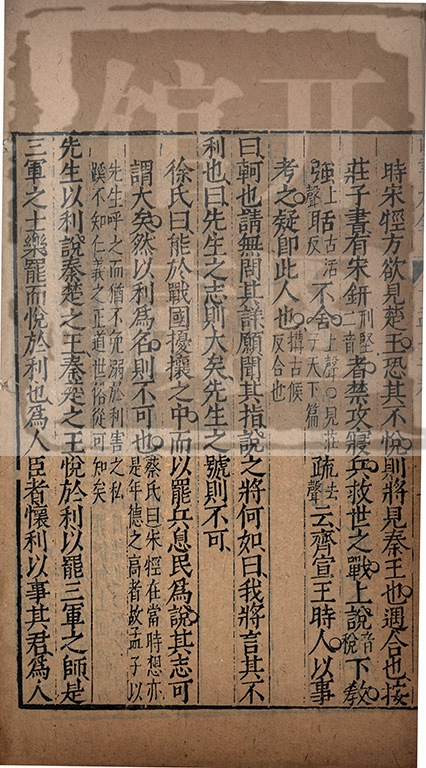 時宋牼方欲見楚王恐其不悅則將見秦王也遇合也按
莊子書有宋鈃刑堅二音者禁攻寢兵救世之戰上說音稅下教
強上聲聒古活反不舍上聲○見莊子天下篇疏去聲云齊宣王時人以事
考之疑即此人也搆古候反合也
曰軻也請無問其詳願聞其指說之將何如曰我將言其不
利也曰先生之志則大矣先生之號則不可
徐氏曰能於戰國擾攘之中而以罷兵息民為說其志可
謂大矣然以利為名則不可也蔡氏曰宋牼在當時想亦是年德之高者故孟子以
先生呼之而猶不免溺於利害之私蹊不知仁義之正道世俗從可知矣
先生以利說秦楚之王秦楚之王悅於利以罷三軍之師是
三軍之士樂罷而悅於利也為人臣者懷利以事其君為人